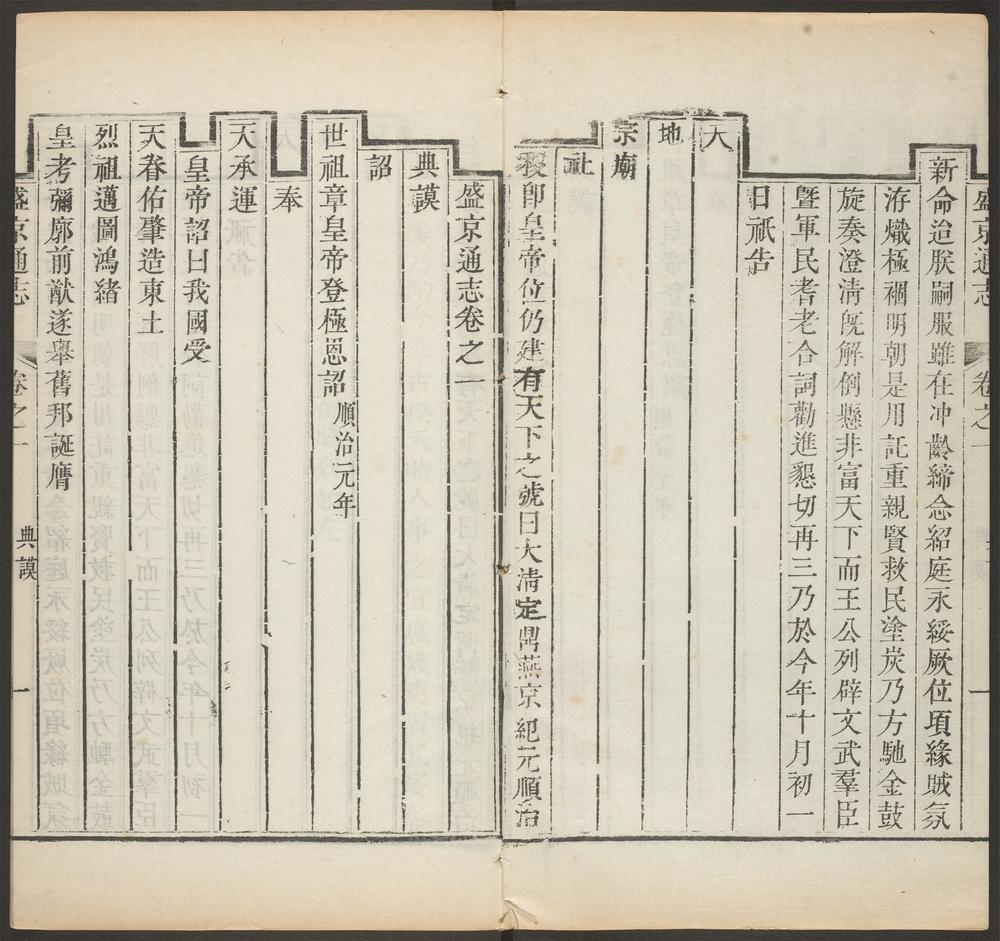 盛京通志 卷之一 一
新命迨朕嗣服雖在冲齡締念紹庭永綏厥位項緣賊氛
洊熾極禍明朝是用託重親賢救民塗炭乃方馳金鼓
旋奏澄清旣解倒懸非富天下而王公列辟文武羣臣
暨軍民耆老合詞勸進懇切再三乃於今年十月初一
日祇告
天
地
宗廟
社
稷卽皇帝位仍建有天下之號曰大清定鼎燕京紀元順治
盛京通志卷之一
典謨
詔
世祖章皇帝登極恩詔順治元年
奉
天承運
皇帝詔曰我國受
天眷佑肇造東土
烈祖邁圖鴻緒
皇考彌廓前猷遂舉舊邦誕膺
盛京通志 卷之一 典謨 一